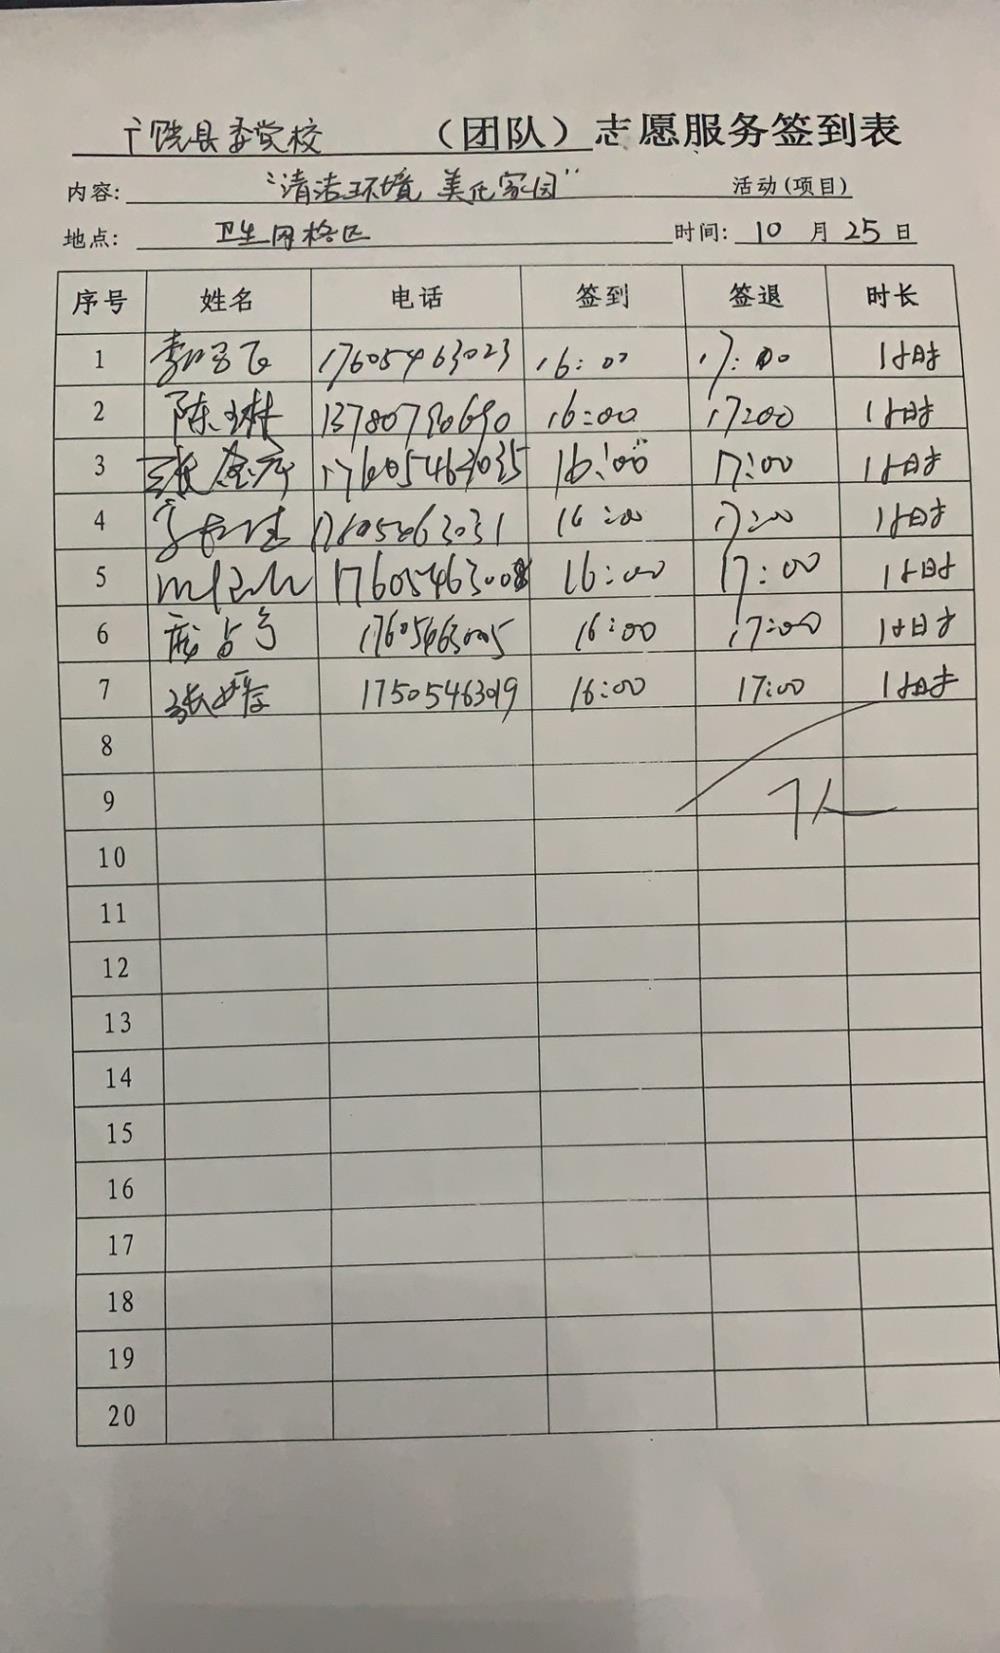 广饶县委党校 （团队）志愿服务签到表
内容: “清洁环境 美化家园” 活动(项目)
地点: 卫生网格区 时间: 10 月 25 日
序号 姓名 电话 签到 签退 时长
1 17605463023 16:00 17:00 1小时
2 陈琳 13780790690 16:00 17:00 1小时
3 张 17605463035 16:00 17:00 1小时
4 17605463031 16:00 17:00 1小时
5 17605463008 16:00 17:00 1小时
6 17605463005 16:00 17:00 1小时
7 张 17505463019 16:00 17:00 1小时
8
9 7人
10
11
12
13
14
15
16
17
18
19
20